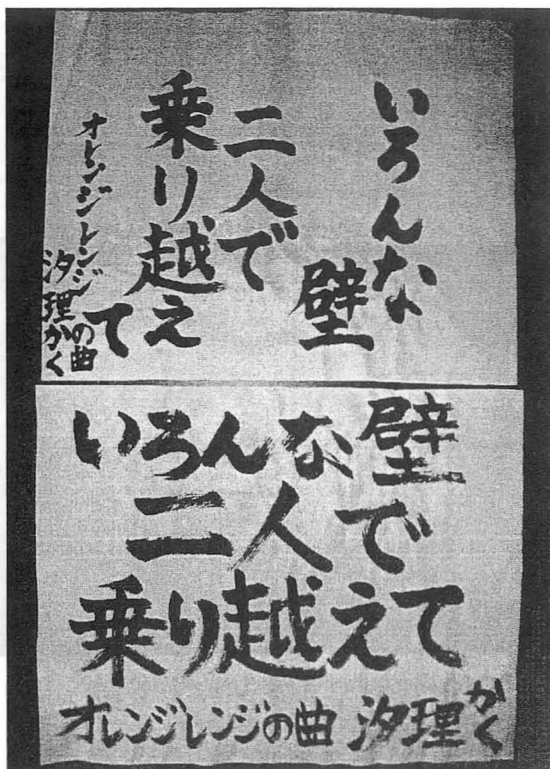 いろんな
壁
二人で
乗り越え
て
オレンジレンジの曲
汐理かく
いろんな壁
二人で
乗り越えて
オレンジレンジの曲 汐理かく